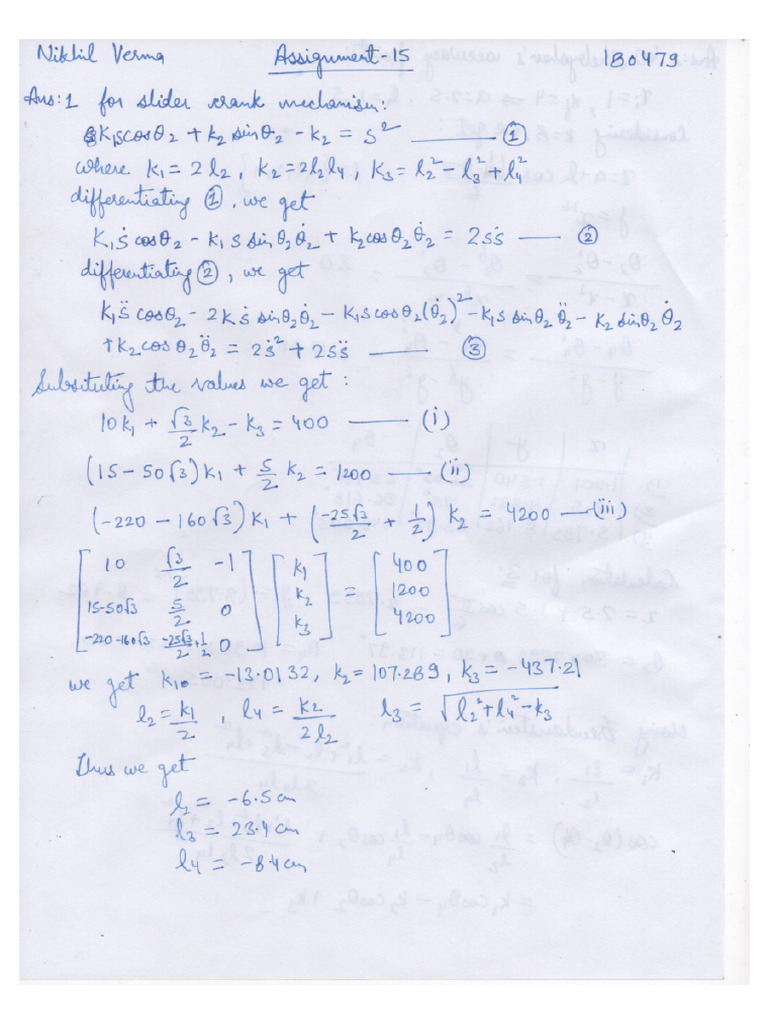 Nikhil Verma Assignment-15 180479
Ans:1 for slider crank mechanism:
K₁s cosθ₂ + k₂ sinθ₂ - k₂ = s² ——— ①
where k₁ = 2l₂, k₂ = 2l₂l₄, K₃ = l₂² - l₃² + l₄²
differentiating ①, we get
K₁ṡ cosθ₂ - k₁ s sinθ₂θ̇₂ + k₂cosθ₂θ̇₂ = 2sṡ ——— ②
differentiating ②, we get
k₁s̈ cosθ₂ - 2Kṡ sinθ₂θ̇₂ - k₁s cosθ₂(θ̇₂)² - k₁s sinθ₂ θ̈₂ - k₂ sinθ₂ θ̇₂
+k₂cosθ₂θ̈₂ = 2ṡ² + 2ss̈ ——— ③
Subsituting the values we get :
10k₁ + √3/2 k₂ - k₃ = 400 ——— (i)
(15-50√3)k₁ + 5/2 k₂ = 1200 ——— (ii)
(-220-160√3)k₁ + (-25√3/2 + 1/2) k₂ = 4200 — (iii)
[10 √3/2 -1] [k₁] = [400]
[15-50√3 5/2 0] [k₂] [1200]
[-220-160√3 -25√3/2+1/2 0] [k₃] [4200]
we get k₁ = -13.0132, k₂ = 107.289, k₃ = -437.21
l₂ = k₁/2, l₄ = k₂/2l₂ l₃ = √(l₂²+l₄²-k₃)
Thus we get
l₂ = -6.5 cm
l₃ = 23.4 cm
l₄ = -8.4 cm